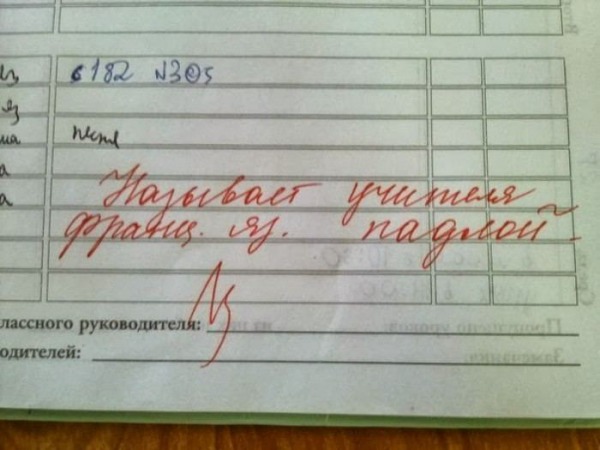 с182 №3 05
яз
песня
Называет учителя
франц. яз. падлой.
лассного руководителя:
одителей: